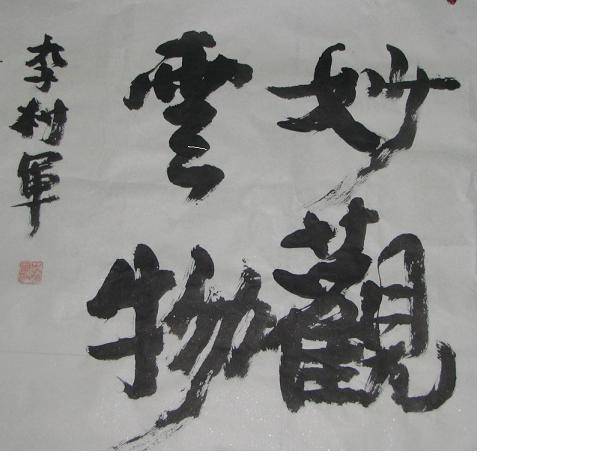 妙觀
雲物
李利軍